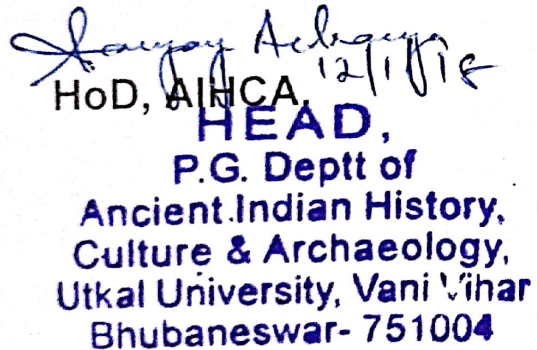 Sanjay Acharya
12/11/18
HoD, AIHCA,
HEAD,
P.G. Deptt of
Ancient Indian History,
Culture & Archaeology,
Utkal University, Vani Vihar
Bhubaneswar- 751004